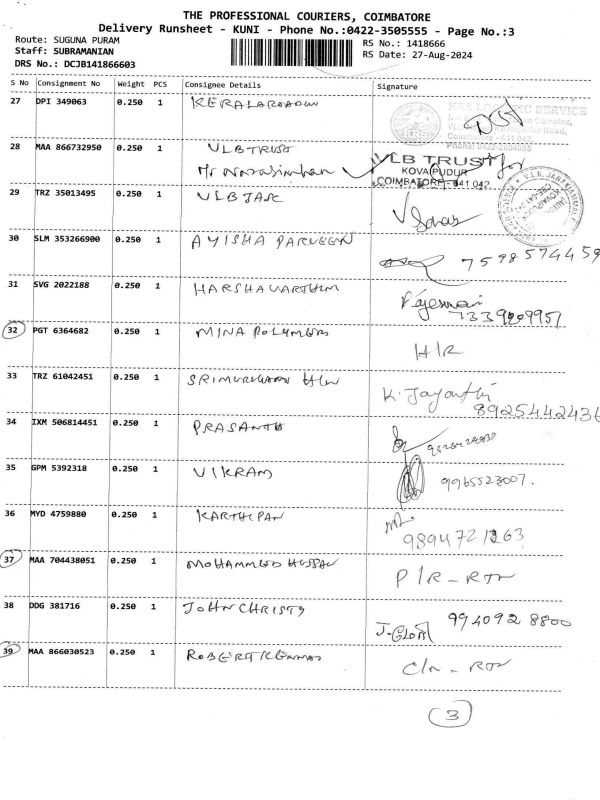 THE PROFESSIONAL COURIERS, COIMBATORE
Delivery Runsheet - KUNI - Phone No.:0422-3505555 - Page No.:3
Route: SUGUNA PURAM
Staff: SUBRAMANIAN
DRS No.: DCJB141866603
RS No.: 1418666
RS Date: 27-Aug-2024
S No Consignment No Weight PCS Consignee Details Signature
27 DPI 349063 0.250 1
KRS LOGISTIC SERVICE
28 MAA 866732950 0.250 1 VLB TRUST
Mr Narasimhan
VLB TRUST
KOVAIPUDUR
COIMBATORE - 641 042
29 TRZ 35013495 0.250 1 VLB JASC
30 SLM 353266900 0.250 1 AYISHA PARVEEN
7598574459
31 SVG 2022188 0.250 1 HARSHAVARTHINI
32 PGT 6364682 0.250 1 MINA POLYMERS H/R
33 TRZ 61042451 0.250 1 K. Jayanthi
8925442436
34 IXM 506814451 0.250 1 PRASANTH
35 GPM 5392318 0.250 1 VIKRAM 9965523007.
36 MYD 4759880 0.250 1 9894721263
37 MAA 704438051 0.250 1 MOHAMMED HUSSAN P/R - RTN
38 DDG 381716 0.250 1 JOHN CHRISTY 994092 8800
39 MAA 866030523 0.250 1 - RTN
3